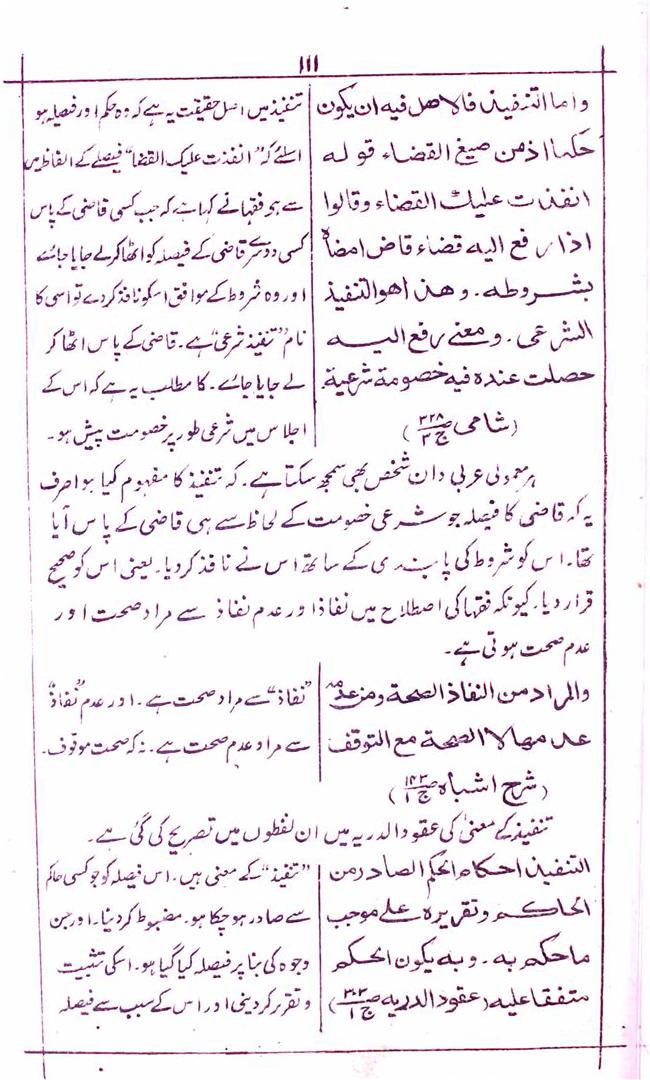 ۱۱۱
واما التنفیذ فالاصل فیه ان یکون
حکما اذ من صیغ القضاء قوله
انفذت علیك القضاء وقالوا
اذا رفع الیه قضاء قاض امضاه
بشروطه۔ وهذا هوالتنفیذ
الشرعی۔ ومعنی رفع الیه
حصلت عنده فیه خصومة شرعیة۔
(شامی ص۳۲۸ ج۳)
تنفیذ میں اصل حقیقت یہ ہے کہ وہ حکم اور فیصلہ ہو
اسلئے کہ "انفذت علیک القضا" فیصلے کے الفاظ میں
سے ہے فقہا نے کہا ہے کہ جب کسی قاضی کے پاس
کسی دوسرے قاضی کے فیصلہ کو اٹھا کر لے جایا جائے
اور وہ شروط کے موافق اسکو نافذ کر دے تو اسی کا
نام "تنفیذ شرعی" ہے۔ قاضی کے پاس اٹھا کر
لے جایا جائے۔ کا مطلب یہ ہے کہ اس کے
اجلاس میں شرعی طور پر خصومت پیش ہو۔
ہر معمولی عربی دان شخص بھی سمجھ سکتا ہے۔ کہ تنفیذ کا مفہوم کیا ہوا صرف
یہ کہ قاضی کا فیصلہ جو شرعی خصومت کے لحاظ سے ہی قاضی کے پاس آیا
تھا۔ اس کو شروط کی پابندی کے ساتھ اس نے نافذ کردیا۔ یعنی اس کو صحیح
قرار دیا۔ کیونکہ فقہا کی اصطلاح میں نفاذ اور عدم نفاذ سے مراد صحت اور
عدم صحت ہوتی ہے۔
والمراد من النفاذ الصحة ومن عدمه
عدمها لا الصحة مع التوقف
(شرح اشباه ص۱۴۳ ج۱)
"نفاذ" سے مراد صحت ہے۔ اور عدم "نفاذ"
سے مراد عدم صحت ہے۔ نہ کہ صحت موقوف۔
تنفیذ کے معنی کی عقود الدریہ میں ان لفظوں میں تصریح کی گئی ہے۔
التنفیذ احکام الحکم الصادر من
الحاکم وتقریره علی موجب
ما حکم به۔ وبه یکون الحکم
متفقا علیه (عقود الدریه ص۳۰۳ ج۱)
"تنفیذ" کے معنی ہیں۔ اس فیصلہ کو جو کسی حاکم
سے صادر ہو چکا ہو۔ مضبوط کر دینا۔ اور جن
وجوہ کی بنا پر فیصلہ کیا گیا ہو۔ اسکی تثبیت
و تقرر کر دینی اور اس کے سبب سے فیصلہ